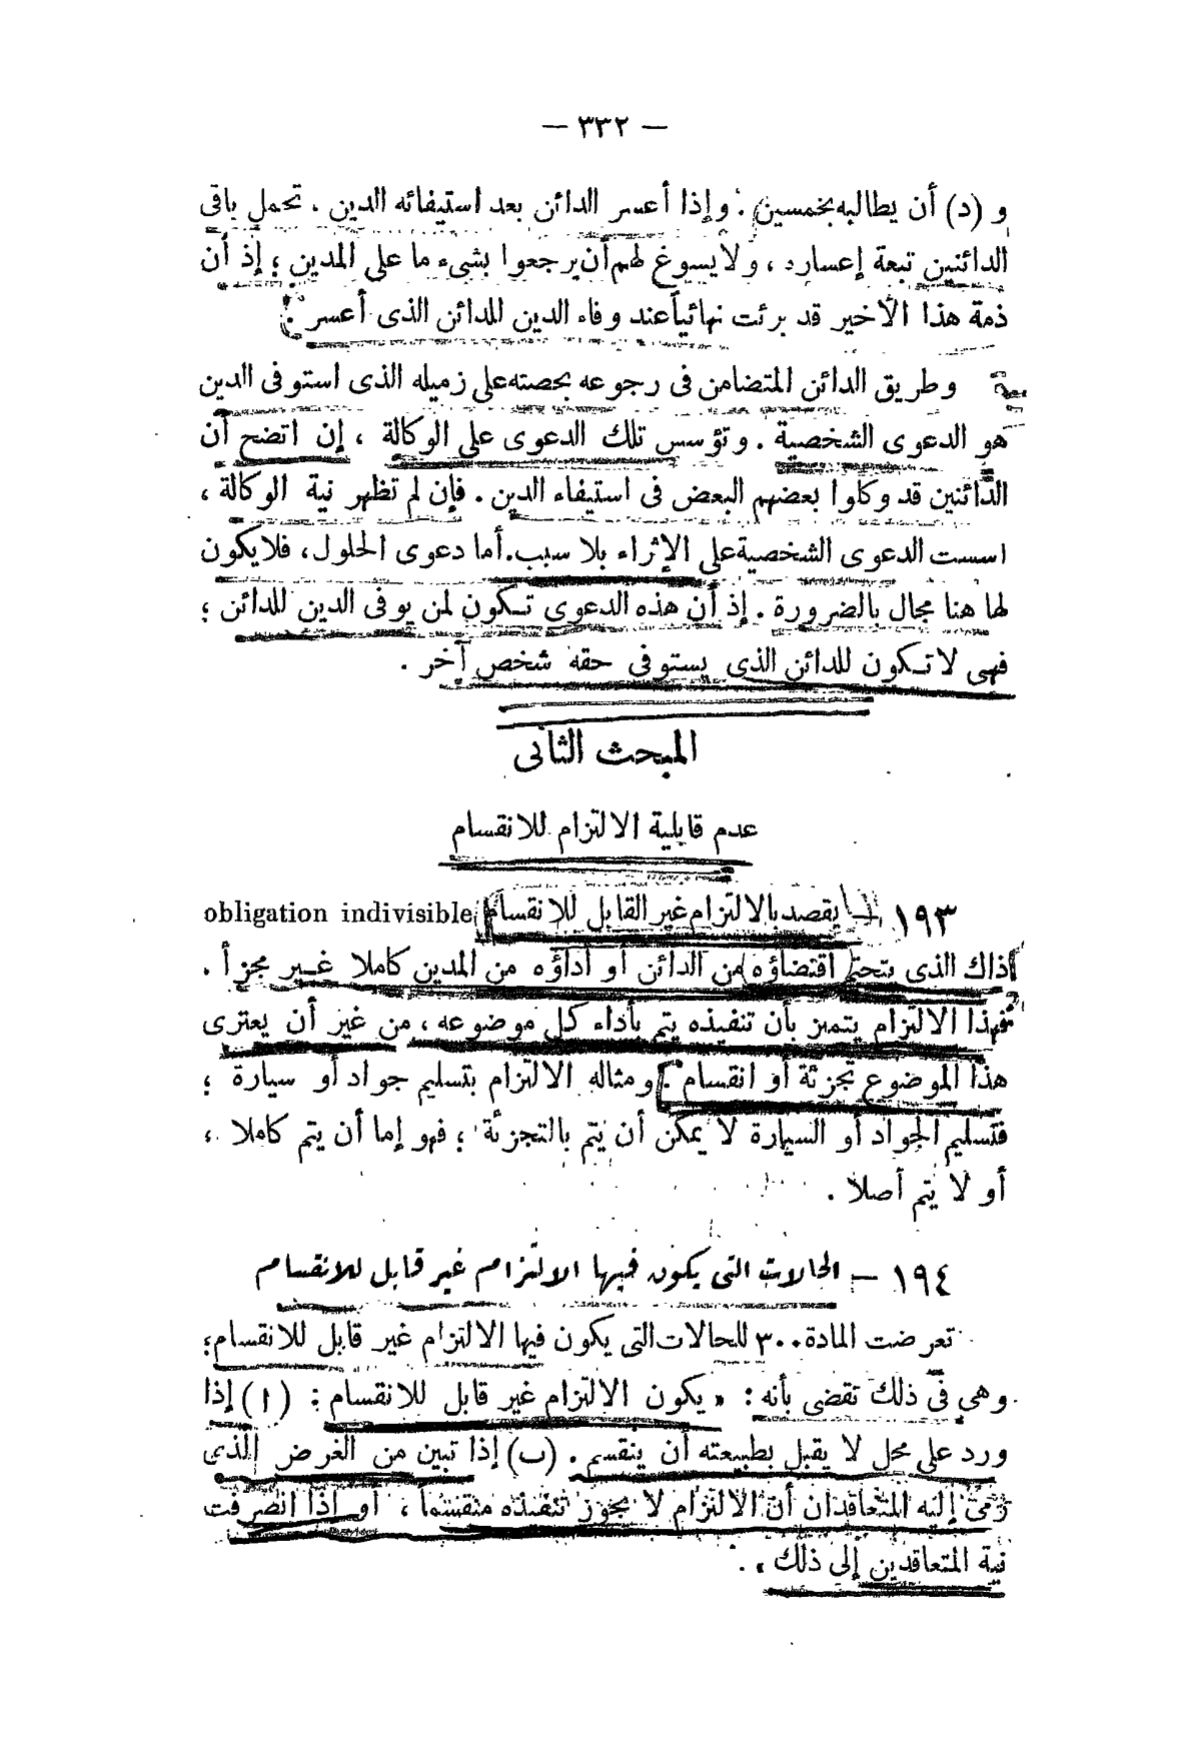 — ٣٣٢ —
و (د) أن يطالبه بخمسين . وإذا أعسر الدائن بعد استيفائه الدين ، تحمل باقى
الدائنين تبعة إعساره ، ولا يسوغ لهم أن يرجعوا بشىء ما على المدين ؛ إذ أن
ذمة هذا الأخير قد برئت نهائياً عند وفاء الدين للدائن الذى أعسر .
وطريق الدائن المتضامن فى رجوعه بحصته على زميله الذى استوفى الدين
هو الدعوى الشخصية . وتؤسس تلك الدعوى على الوكالة ، إن اتضح أن
الدائنين قد وكلوا بعضهم البعض فى استيفاء الدين . فإن لم تظهر نية الوكالة ،
اسست الدعوى الشخصية على الإثراء بلا سبب . أما دعوى الحلول ، فلا يكون
لها هنا مجال بالضرورة . إذ أن هذه الدعوى تكون لمن يوفى الدين للدائن ؛
فهى لا تكون للدائن الذى يستوفى حقه شخص آخر .
المبحث الثانى
عدم قابلية الالتزام للانقسام
١٩٣ — يقصد بالالتزام غير القابل للانقسام obligation indivisible
ذاك الذى يتحتم اقتضاؤه من الدائن أو أداؤه من المدين كاملا غير مجزأ .
فهذا الالتزام يتميز بأن تنفيذه يتم بأداء كل موضوعه ، من غير أن يعترى
هذا الموضوع تجزئة أو انقسام . ومثاله الالتزام بتسليم جواد أو سيارة ؛
فتسليم الجواد أو السيارة لا يمكن أن يتم بالتجزئة ؛ فهو إما أن يتم كاملا ،
أو لا يتم أصلا .
١٩٤ — الحالات التى يكون فيها الالتزام غير قابل للانقسام
تعرضت المادة ٣٠٠ للحالات التى يكون فيها الالتزام غير قابل للانقسام ؛
وهى فى ذلك تقضى بأنه : « يكون الالتزام غير قابل للانقسام : (ا) إذا
ورد على محل لا يقبل بطبيعته أن ينقسم . (ب) إذا تبين من الغرض الذى
رمى إليه المتعاقدان أن الالتزام لا يجوز تنفيذه منقسما ، أو إذا انصرفت
نية المتعاقدين إلى ذلك » .